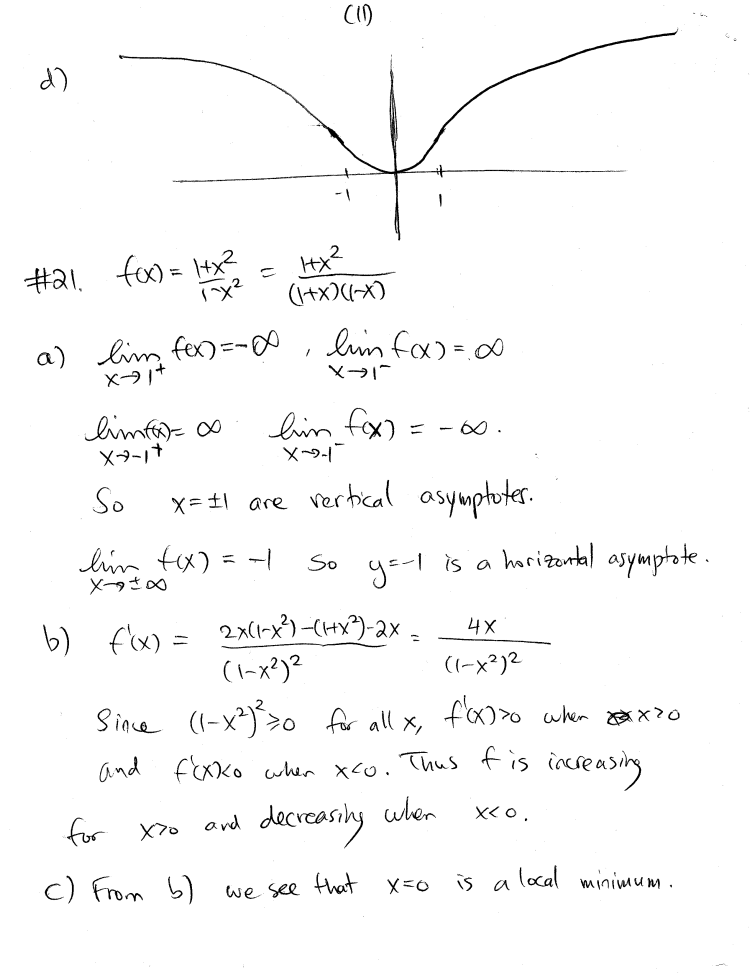 (11)
d)
-1 1
#21. f(x) = 1+x² / 1-x² = 1+x² / (1+x)(1-x)
a) lim x→1⁺ f(x) = -∞ , lim x→1⁻ f(x) = ∞
lim x→-1⁺ f(x) = ∞ lim x→-1⁻ f(x) = -∞.
So x = ±1 are vertical asymptotes.
lim x→±∞ f(x) = -1 So y=-1 is a horizontal asymptote.
b) f'(x) = 2x(1-x²)-(1+x²)-2x / (1-x²)² = 4x / (1-x²)²
Since (1-x²)² ≥0 for all x, f'(x)>0 when x>0
and f'(x)<0 when x<0. Thus f is increasing
for x>0 and decreasing when x<0.
c) From b) we see that x=0 is a local minimum.